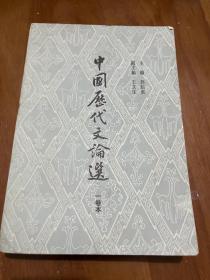 中國歷代文論選
一卷本
主編 郭紹虞
副主編 王文生